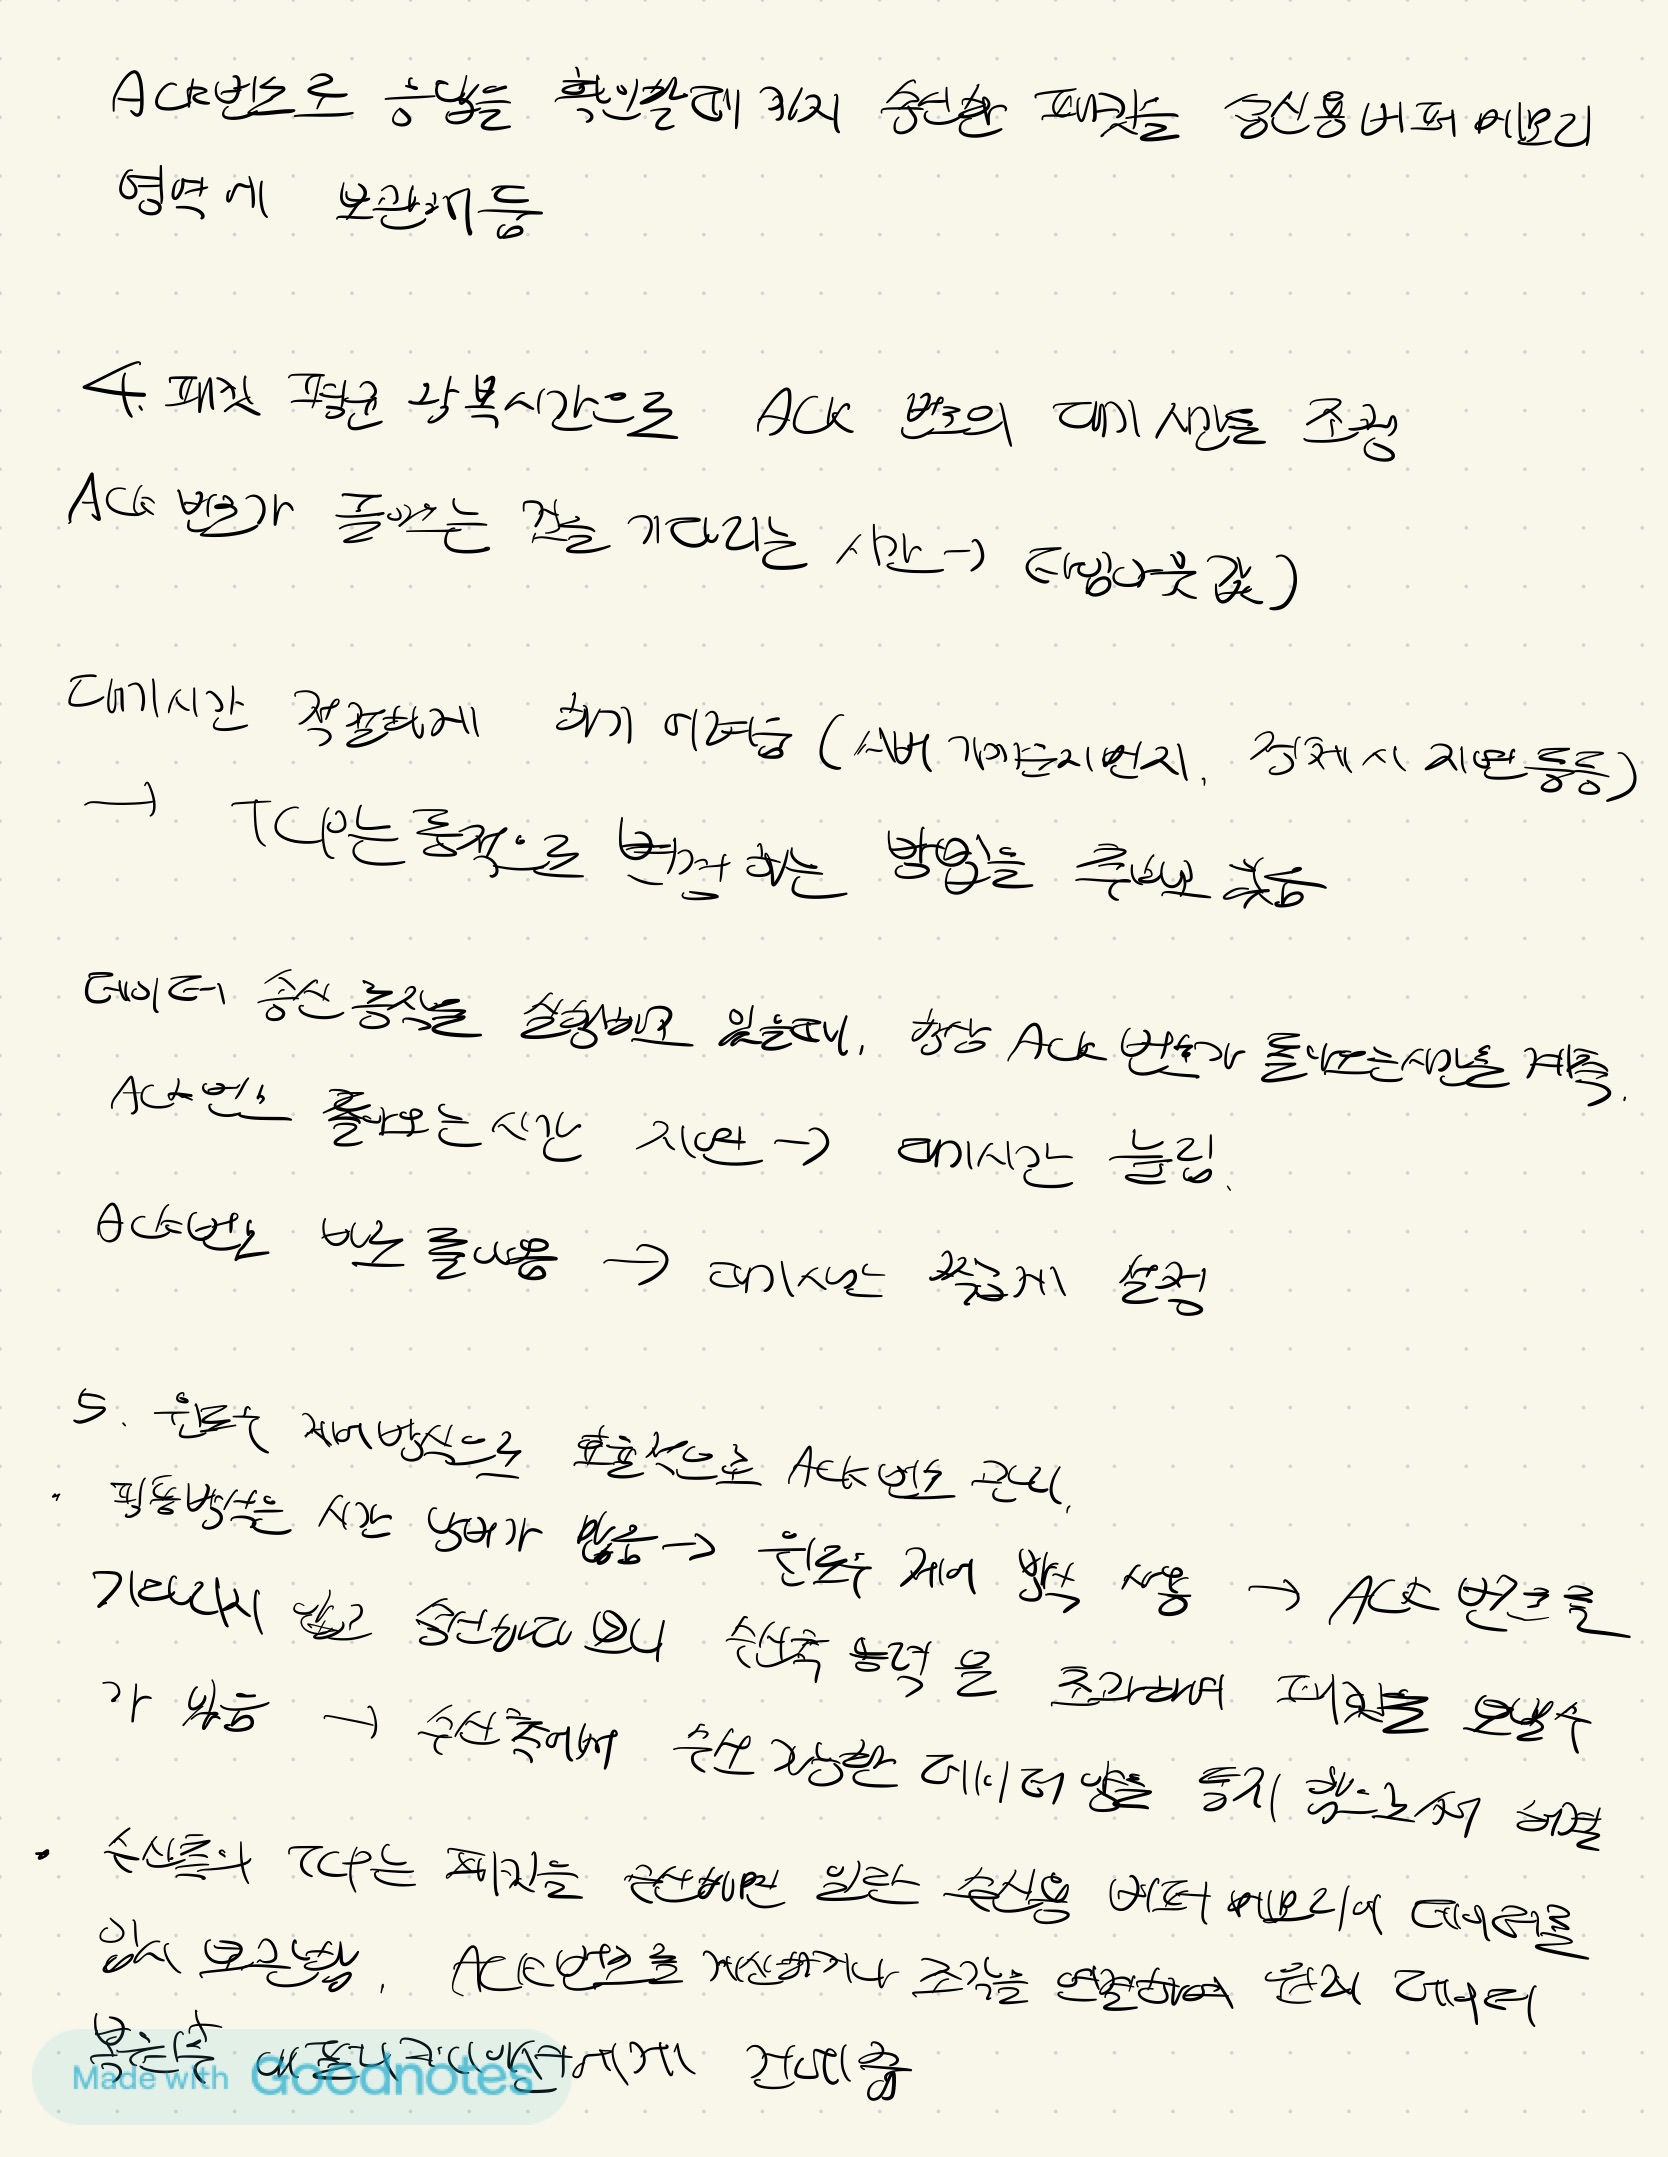 ACK번호로 응답을 확인할때 까지 송신한 패킷을 송신용 버퍼 메모리
영역에 보관해둠
4. 패킷 평균 왕복시간으로 ACK 번호의 대기 시간을 조정
ACK 번호가 돌아오는 것을 기다리는 시간 → 타임아웃 값)
대기시간 적절하게 하기 어려움 (서버 가까운지 먼지, 정체시 지연 등등)
→ TCP는 동적으로 변경 하는 방법을 주로
데이터 송신 동작을 실행하고 있을때, 항상 ACK 번호가 돌아오는시간을 계측.
ACK번호 돌아오는 시간 지연 → 대기시간 늘림.
ACK번호 바로 돌아옴 → 대기시간 짧게 설정
5. 윈도우 제어방식으로 효율적으로 ACK번호 관리.
· 핑퐁방식은 시간 낭비가 많음 → 윈도우 제어 방식 사용 → ACK 번호를
기다리지 않고 송신하다 보니 수신측 능력 을 초과하여 패킷을 보낼수
가 있음 → 수신측에서 수신 가능한 데이터 양을 통지 함으로서 해결
· 수신측의 TCP는 패킷을 수신하면 일단 수신용 버퍼 메모리에 데이터를
임시 보관함. ACK번호를 계산하거나 조각을 연결하여 원래 데이터
복원후 애플리케이션에게 건네줌
Made with Goodnotes